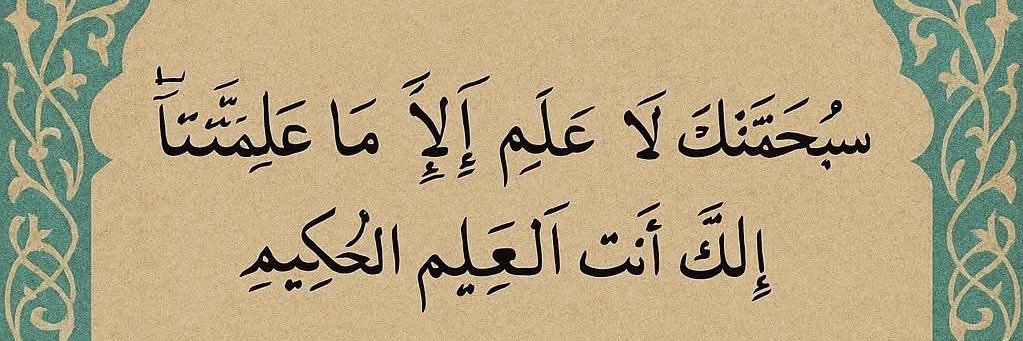 سبُحَمَّنْكَ لَا عَلَمِ إَلِاَّ مَا عَلِمَتَّتنَآ
إِلكَّ أَنت اَلْعَلِيم الحُكِيمِ